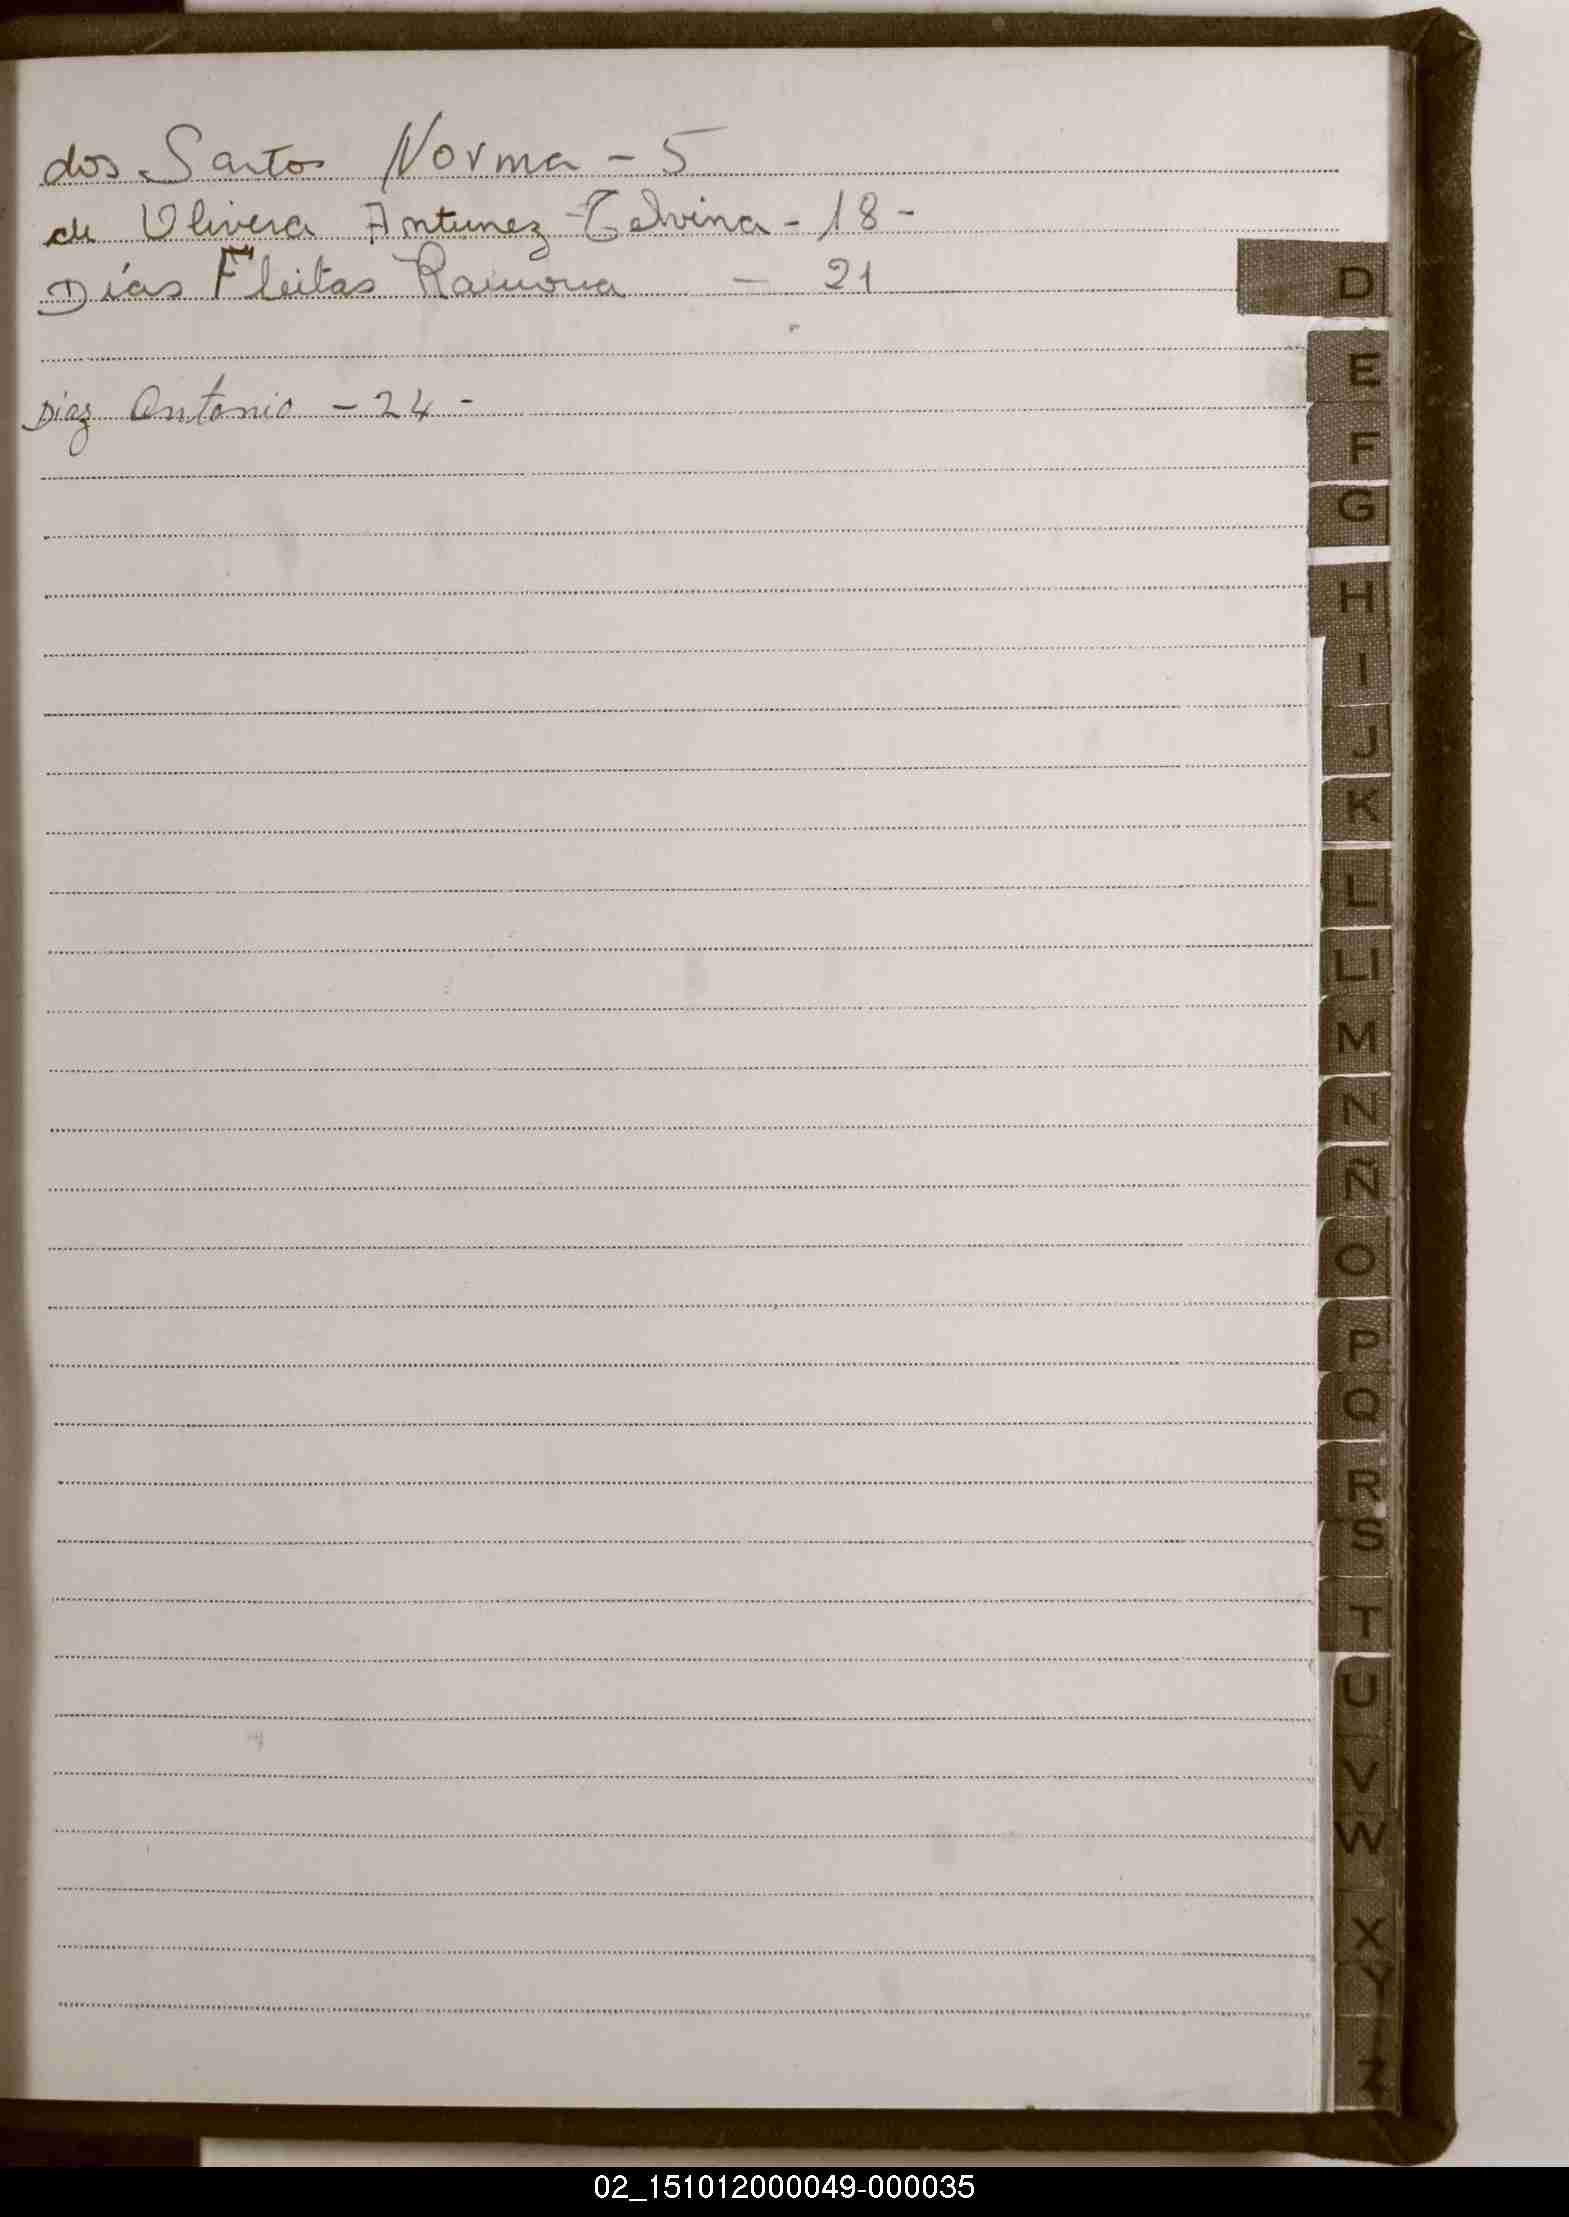 dos Santos Norma - 5
de Olivera Antunez Telvina - 18 -
Días Fleitas Ramona - 21
D
E
Diaz Antonio - 24 -
F
G
H
I
J
K
L
Ll
M
N
Ñ
O
P
Q
R
S
T
U
V
W
X
Y
Z
02_151012000049-000035